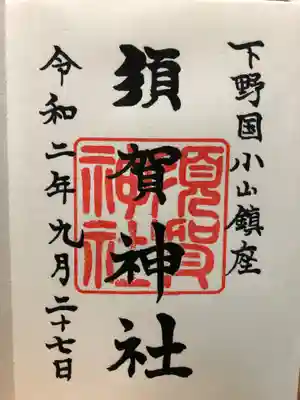 下野国小山鎮座
須賀神社
令和二年九月二十七日
須賀
神社